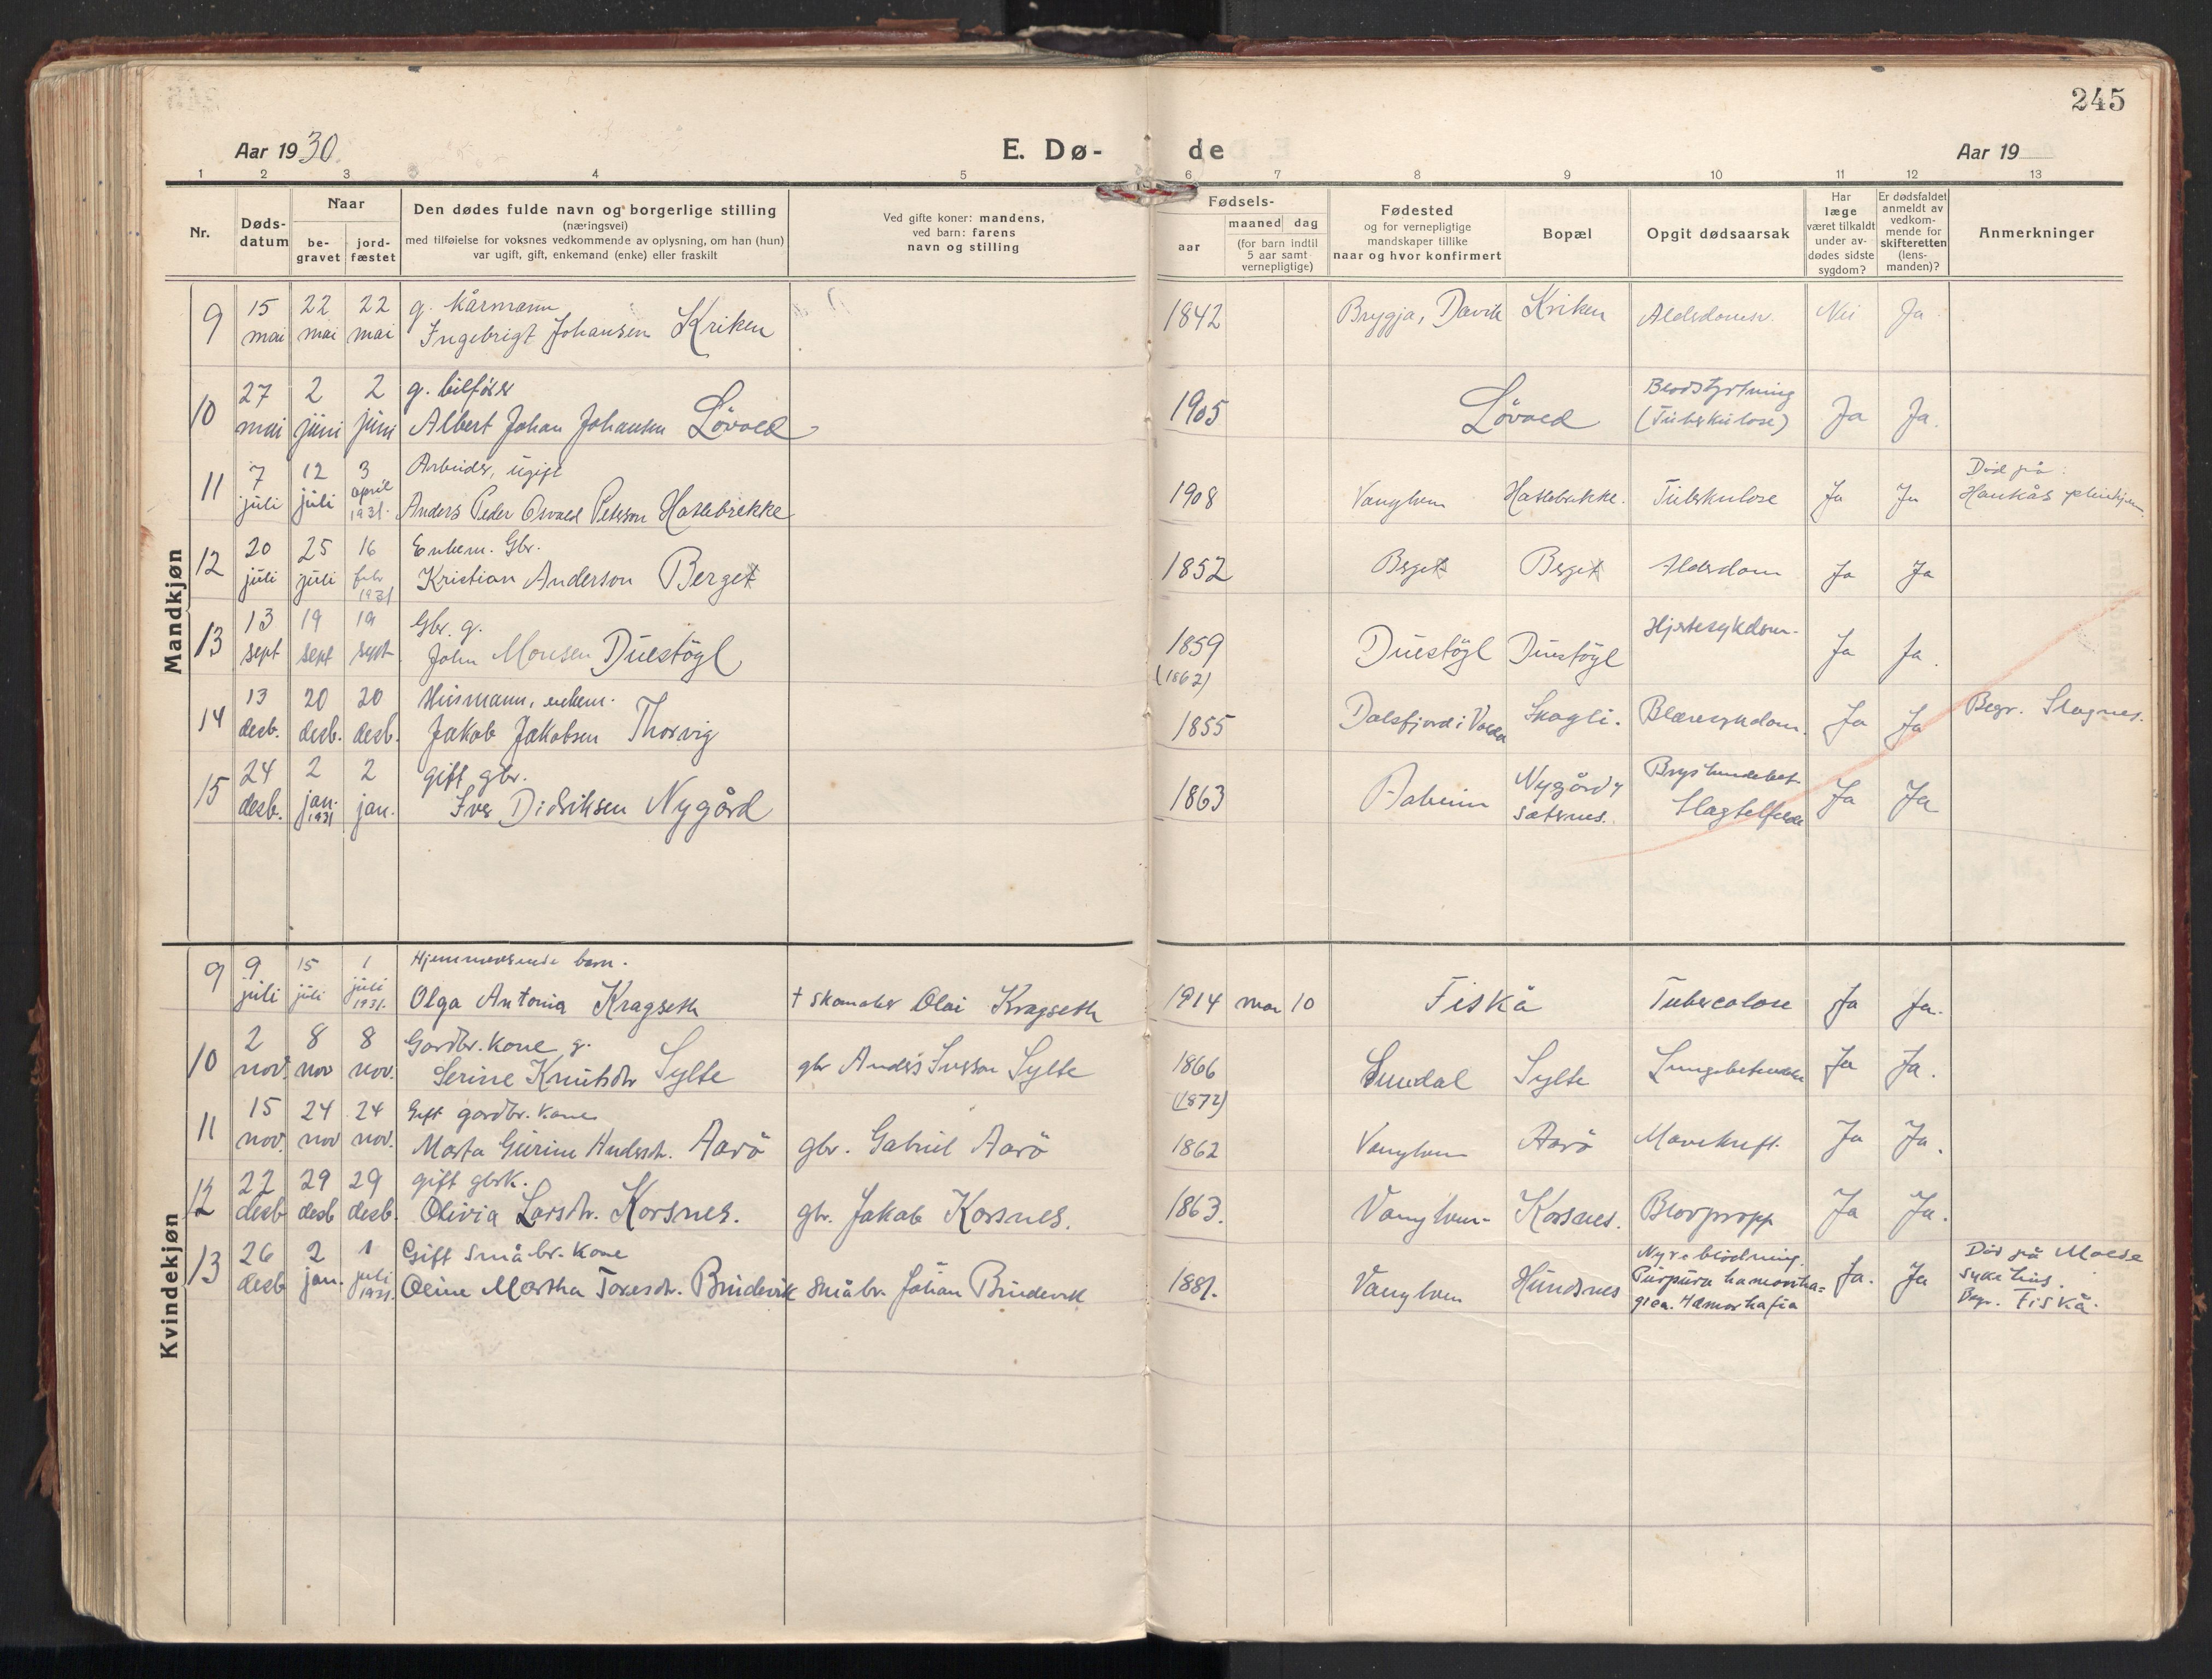 245
Aar 1930.
E. Dø-
de
Aar 19
1 2 3 4 5 6 7 8 9 10 11 12 13
Nr.
Døds-
datum
Naar
be-
gravet
jord-
fæstet
Den dødes fulde navn og borgerlige stilling
(næringsvei)
med tilføielse for voksnes vedkommende av oplysning, om han (hun)
var ugift, gift, enkemand (enke) eller fraskilt
Ved gifte koner: mandens,
ved barn: farens
navn og stilling
Fødsels-
aar
maaned dag
(for barn indtil
5 aar samt
vernepligtige)
Fødested
og for vernepligtige
mandskaper tillike
naar og hvor konfirmert
Bopæl
Opgit dødsaarsak
Har
læge
været tilkaldt
under av-
dødes sidste
sygdom?
Er dødsfaldet
anmeldt av
vedkom-
mende for
skifteretten
(lens-
manden)?
Anmerkninger
Mandkjøn
9 15 mai 22 mai 22 mai g. kårmann
Ingebrigt Johansen Kriken 1842 Bryggja, Davik Kriken Alderdomsv. Nei Ja
10 27 mai 2 juni 2 juni g. bilfører
Albert Johan Johansen Lövold 1905 Lövold Blodstyrtning
(Tuberkulose) Ja Ja.
11 7 juli 12 juli 3 april 1931. Arbeider, ugift
Anders Peder Osvald Peterson Hatlebrekke 1908 Vanylven Hatlebrekke. Tuberkulose Ja Ja Död på
Haukås pleiehjem.
12 20 juli 25 juli 16 febr 1931 Enkem. Gbr.
Kristian Anderson Berget 1852 Berget Berget Alderdom Ja Ja
13 13 sept 19 sept 19 sept Gbr. g.
John Monsen Duestögl 1859 (1862) Duestögl Duestögl Hjertesykdom Ja Ja.
14 13 desb. 20 desb. 20 desb. Husmann, enkem.
Jakob Jakobsen Thorvig 1855 Dalsfjord i Volda Skogli. Blæresykdom. Ja Ja Begr. Slagnes.
15 24 desb. 2 jan. 1931 2 jan. gift gbr.
Iver Didriksen Nygård 1863 Aaheim Nygård
Sæternes. Brysthindebet
Slagtelfelde Ja Ja
Kvindekjøn
9 9 juli 15 juli 1 juli 1931. Hjemmeværende barn.
Olga Antonia Kragseth † skomaker Olai Kragseth 1914 mar 10 Fiskå Tubercolose Ja Ja.
10 2 nov. 8 nov 8 nov. Gardbr. kone g.
Serine Knutsdtr Sylte gbr Anders Iverson Sylte 1866 (1872) Sundal Sylte Lungebetendelse Ja Ja.
11 15 nov. 24 nov 24 nov. Gift gardbr. kone
Marta Gurine Andersdt. Aarö gbr. Gabriel Aarö 1862 Vanylven Aarö Mavekreft. Ja Ja.
12 22 desb 29 desb 29 desb. gift gbrk.
Olivia Larsdtr. Korsnes. gbr. Jakob Korsnes. 1863. Vanylven Korsnes. Blodpropp Ja Ja.
13 26 desb 2 jan. 1 juli 1931. Gift småbr. kone
Oline Martha Toresdtr. Brudevik småbr. Johan Brudevik 1881. Vanylven Hundsnes Nyreblödning.
Purpura hæmorrha=
gica. Ja. Ja Död på Molde
sykehus.
Begr. Fiskå.